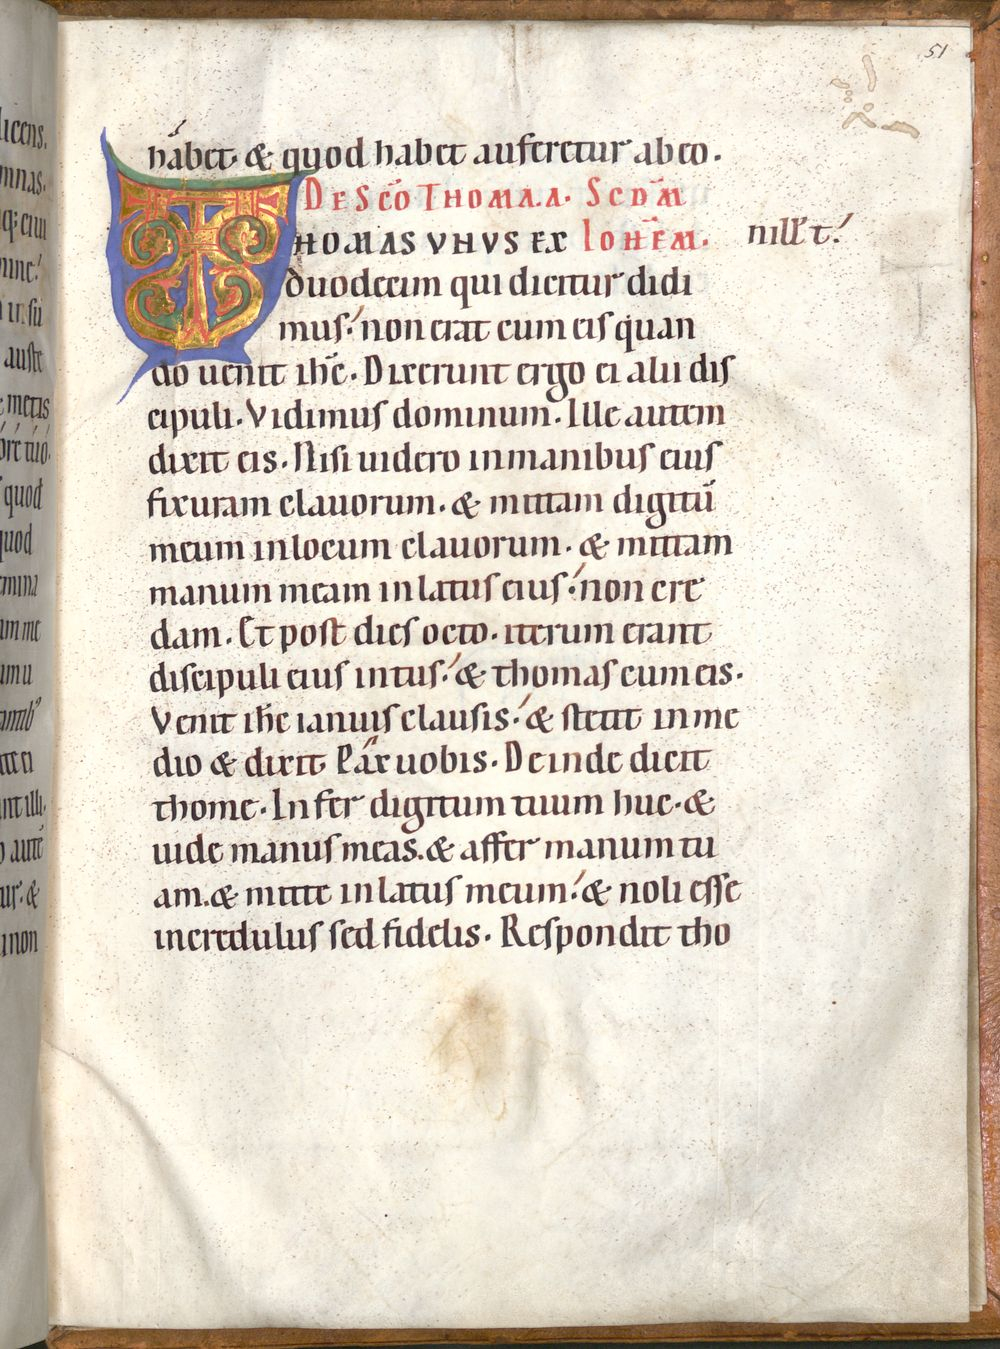 51
habet· & quod habet auferetur ab eo.
DE SC̅O THOMA.A. SCD̅M
THOMAS VNVS EX IOHE̅M.
duodecim qui dicitur didi
mus. non erat cum eis quan
do uenit ih̅c. Dixerunt ergo ei alii dis
cipuli. Vidimus dominum. Ille autem
dixit eis. Nisi uidero in manibus eius
fixuram clauorum. & mittam digitu̅
meum in locum clauorum. & mittam
manum meam in latus eius. non cre
dam. Et post dies octo. iterum erant
discipuli eius intus. & thomas cum eis.
Venit ih̅c ianuis clausis. & stetit in me
dio & dixit Pax uobis. Deinde dicit
thome. Infer digitum tuum huc. &
uide manus meas. & affer manum tu
am. & mitte in latus meum. & noli esse
incredulus sed fidelis. Respondit tho